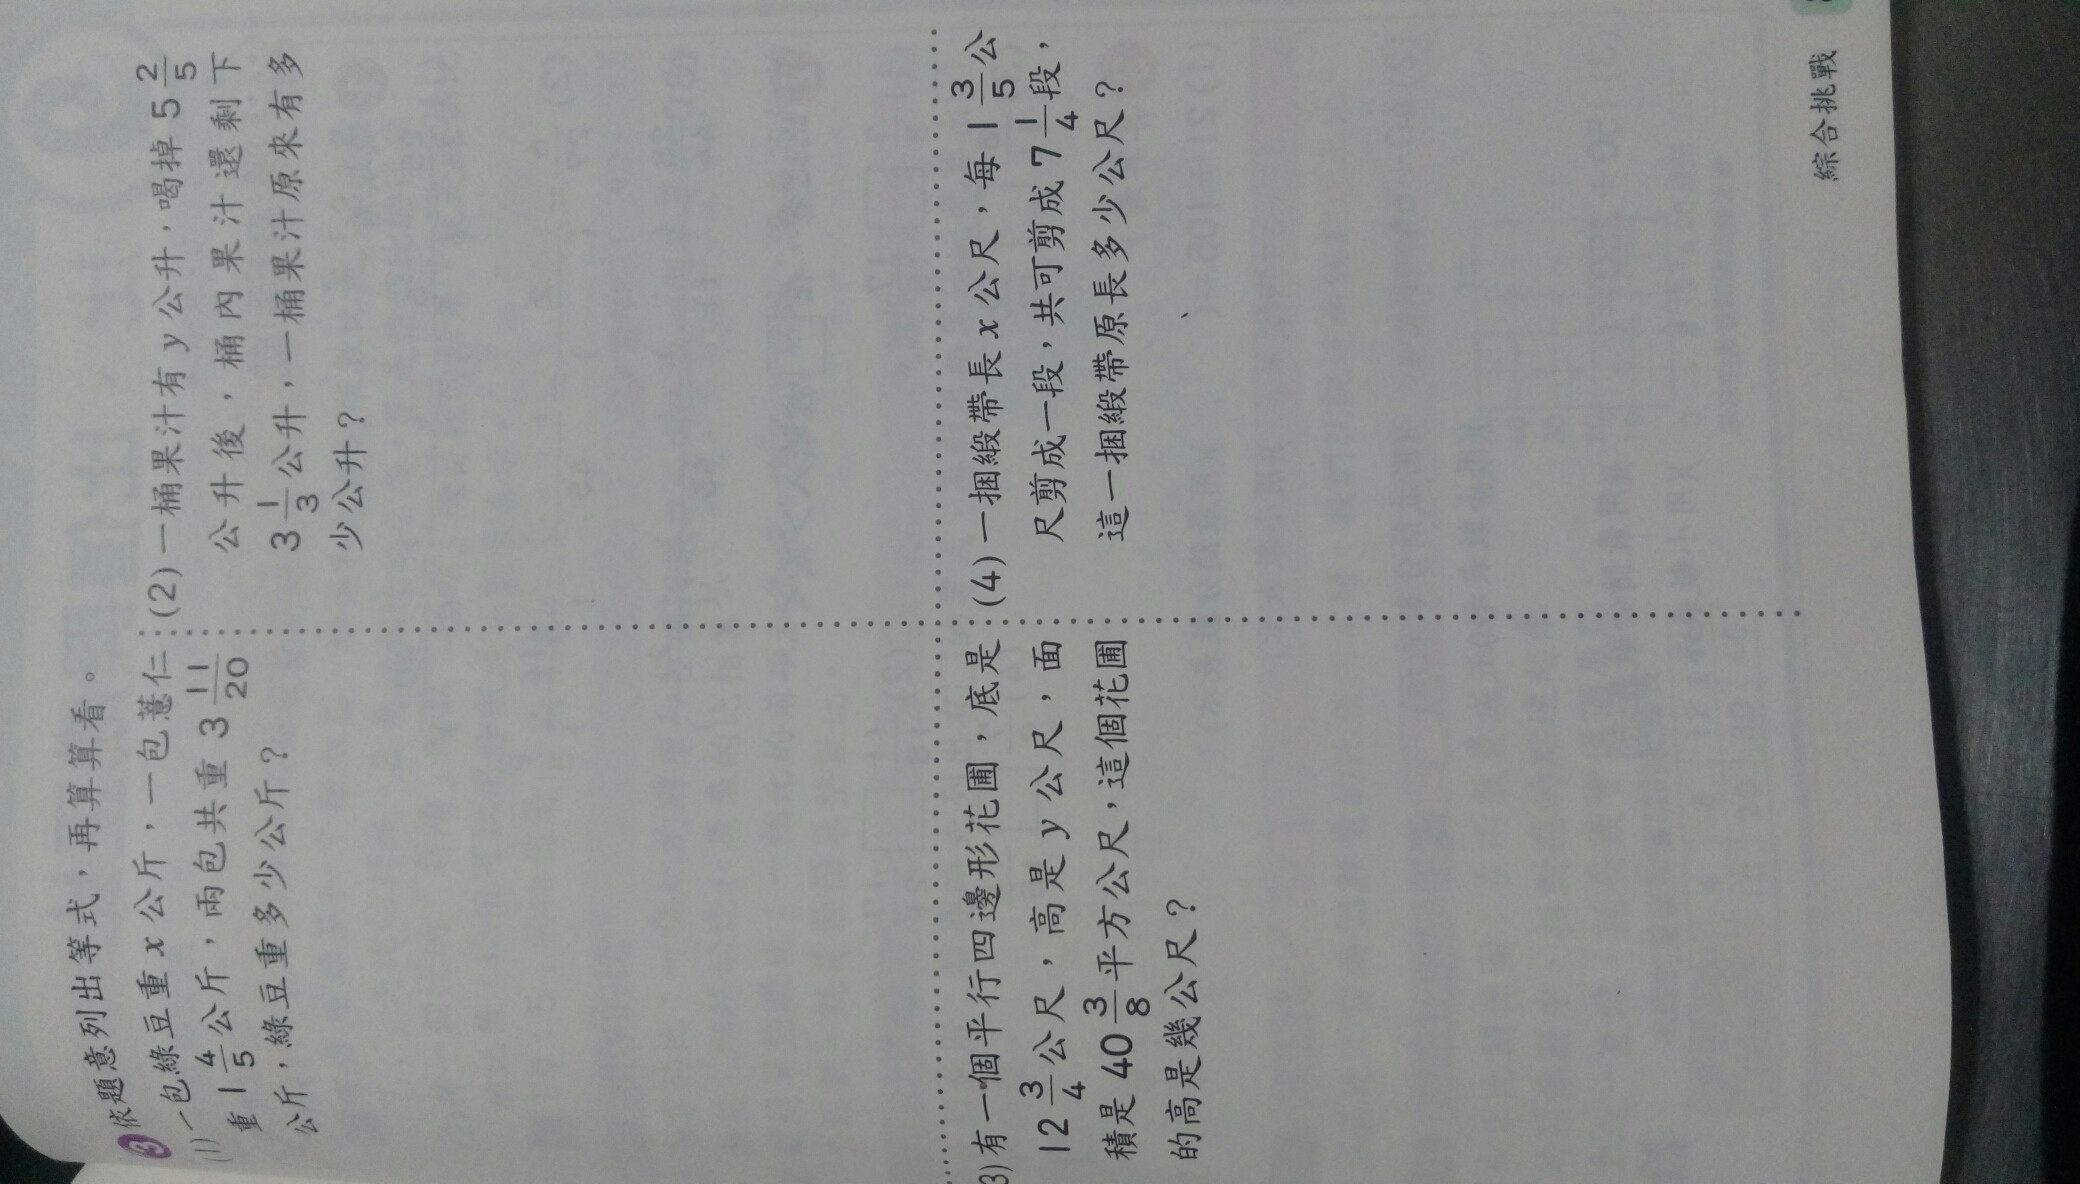 3 依題意列出等式，再算算看。
(1) 一包綠豆重 x 公斤，一包薏仁
重 1 4/5 公斤，兩包共重 3 11/20
公斤，綠豆重多少公斤？
(2) 一桶果汁有 y 公升，喝掉 5 2/5
公升後，桶內果汁還剩下
3 1/3 公升，一桶果汁原來有多
少公升？
3) 有一個平行四邊形花圃，底是
12 3/4 公尺，高是 y 公尺，面
積是 40 3/8 平方公尺，這個花圃
的高是幾公尺？
(4) 一捆緞帶長 x 公尺，每 1 3/5 公
尺剪成一段，共可剪成 7 1/4 段，
這一捆緞帶原長多少公尺？
綜合挑戰